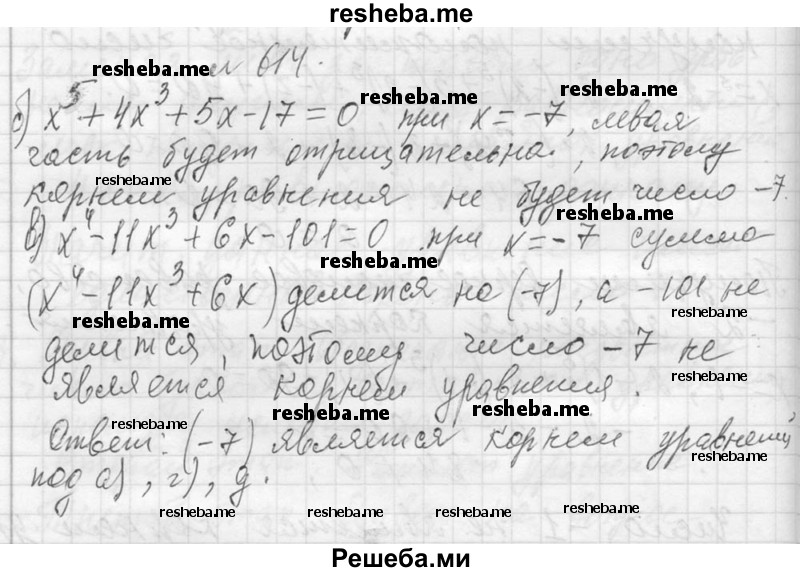 resheba.me
№ 614.
resheba.me
б) x⁵ + 4x³ + 5x - 17 = 0 при x = -7, левая
resheba.me resheba.me
часть будет отрицательна, поэтому
resheba.me
корнем уравнения не будет число -7.
resheba.me
в) x⁴ - 11x³ + 6x - 101 = 0 при x = -7 сумма
resheba.me
(x⁴ - 11x³ + 6x) делится на (-7), а -101 не
resheba.me resheba.me
делится, поэтому число -7 не
resheba.me
является корнем уравнения.
resheba.me resheba.me resheba.me
Ответ: (-7) является корнем уравнений
resheba.me
под а), г), д.
resheba.me resheba.me resheba.me resheba.me
Решеба.ми